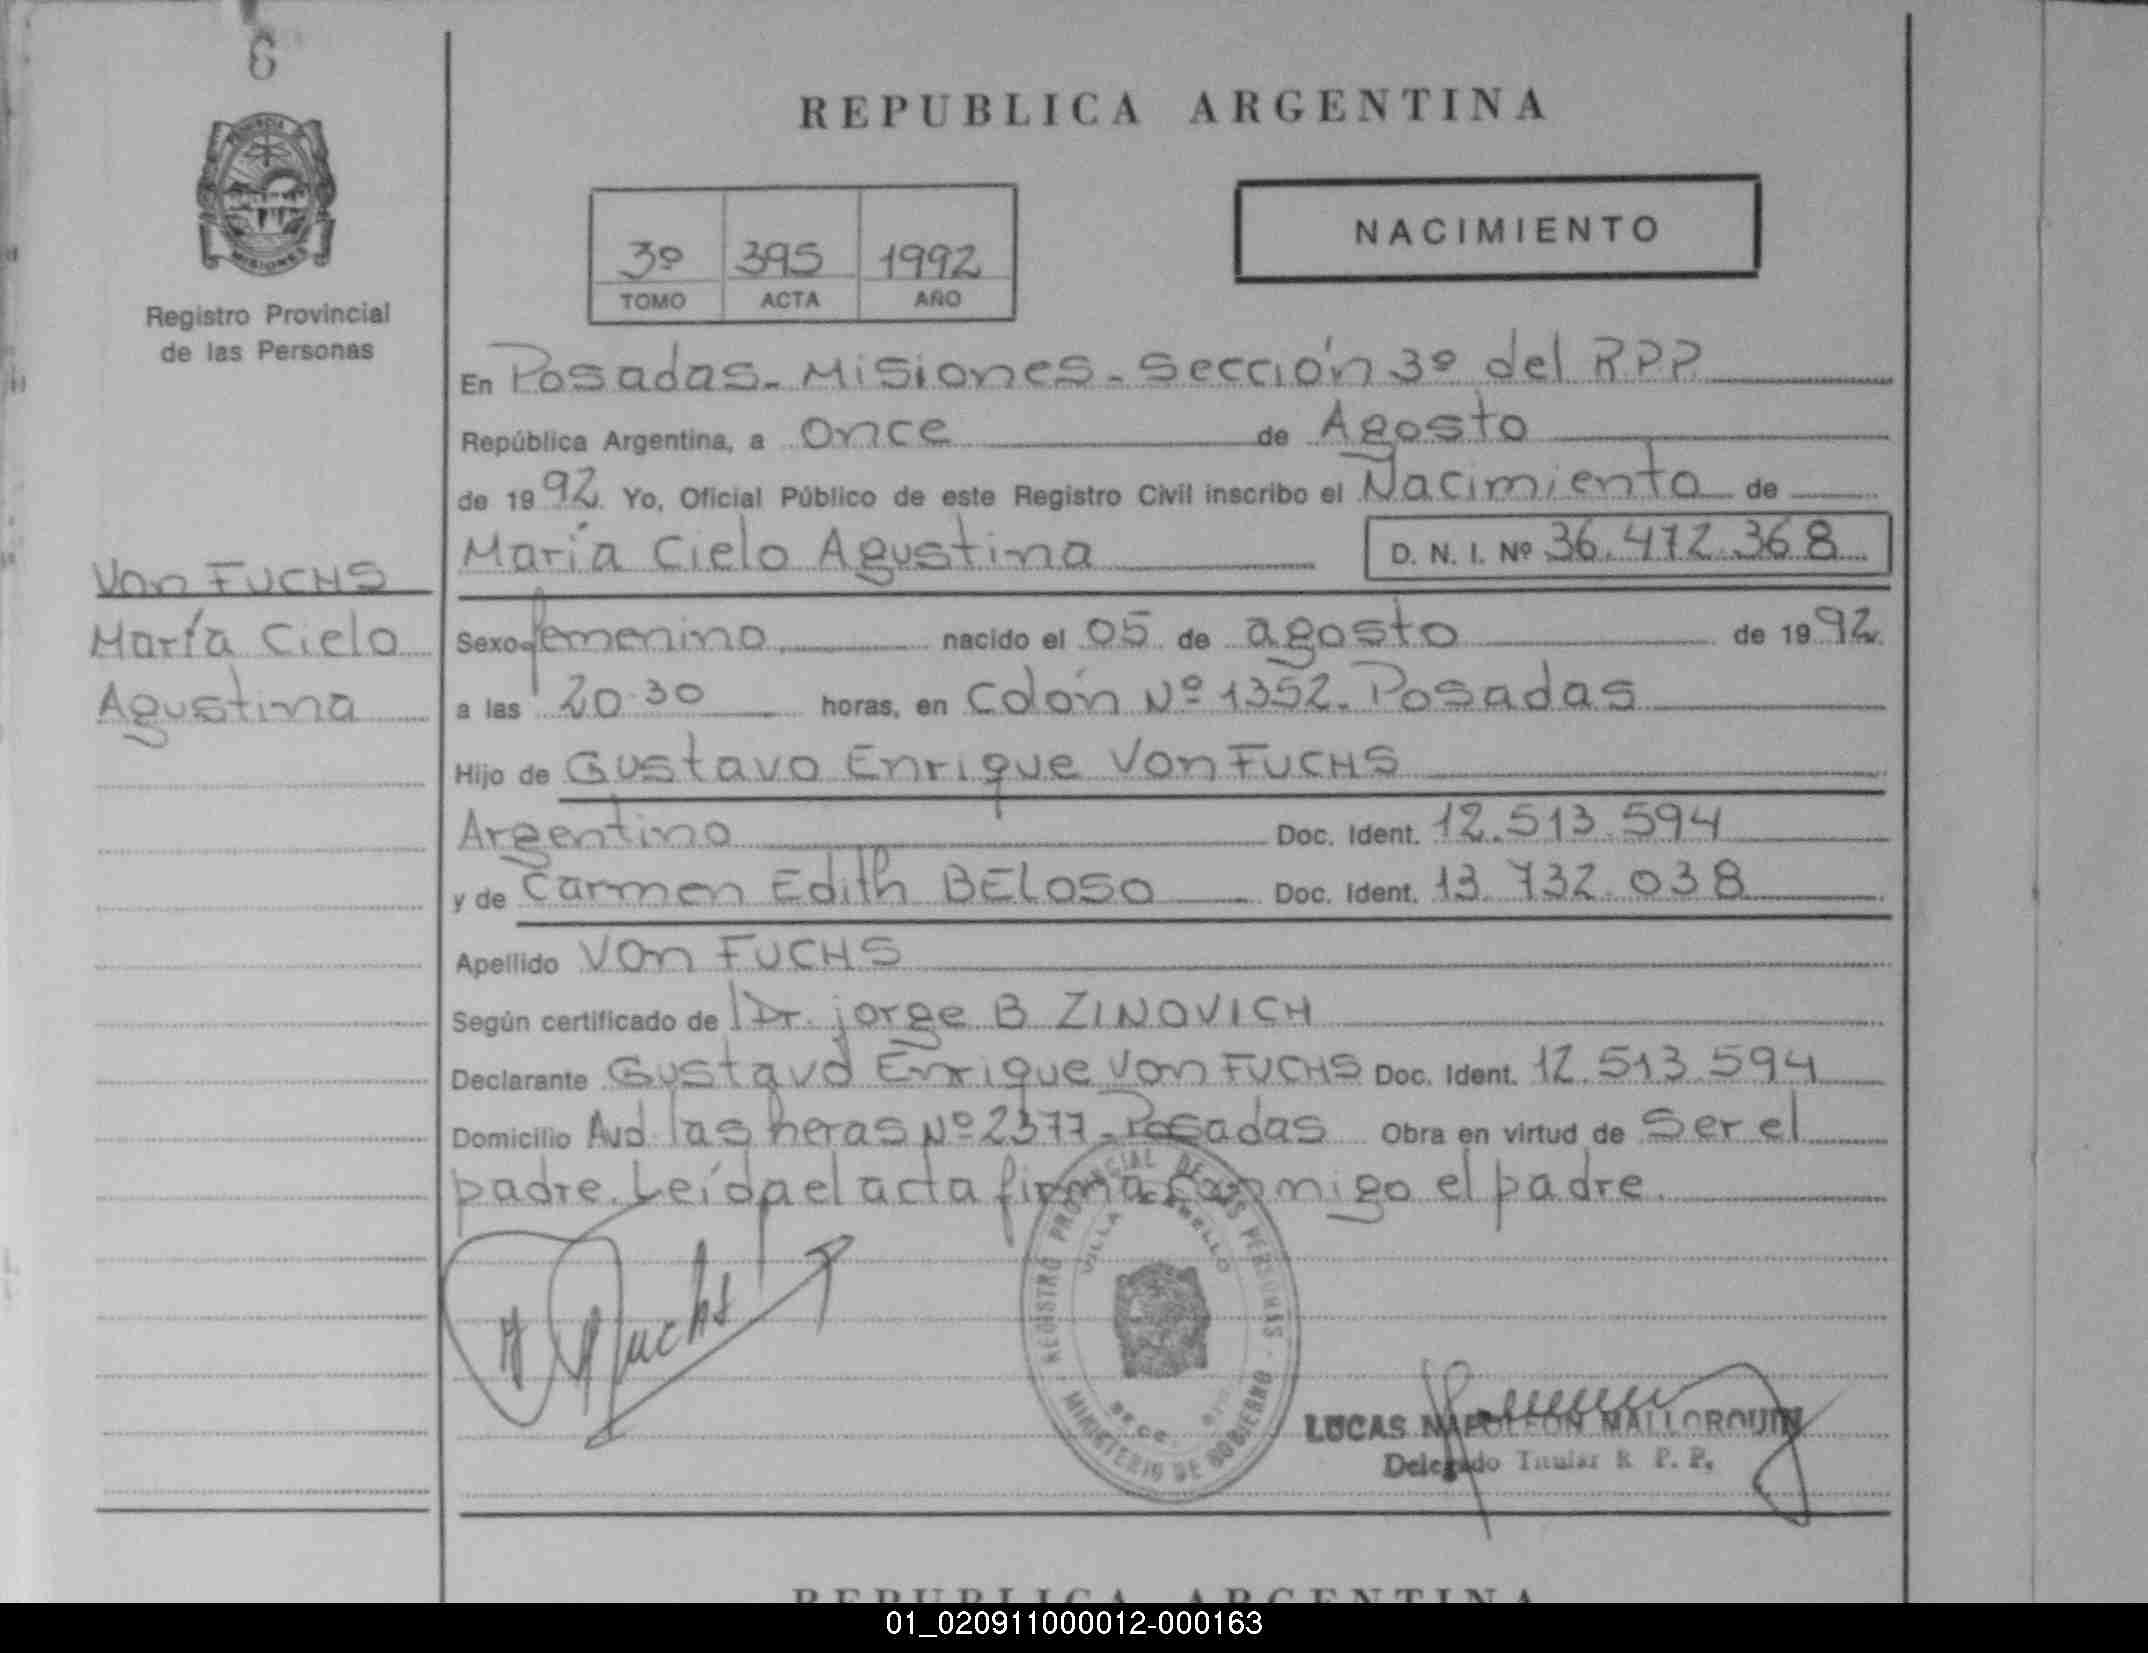 6
REPUBLICA ARGENTINA
3º 395 1992
TOMO ACTA AÑO
NACIMIENTO
MISIONES
Registro Provincial
de las Personas
En Posadas - Misiones - Sección 3º del RPP
República Argentina, a once de Agosto
de 1992. Yo, Oficial Público de este Registro Civil inscribo el Nacimiento de
María Cielo Agustina D. N. I. Nº 36.472.368
Von FUCHS
María Cielo
Agustina
Sexo femenino nacido el 05 de agosto de 1992
a las 20.30 horas, en Colón Nº 1352. Posadas
Hijo de Gustavo Enrique Von FUCHS
Argentino Doc. Ident. 12.513.594
y de Carmen Edith BELOSO Doc. Ident. 13.732.038
Apellido Von FUCHS
Según certificado de Dr. jorge B ZINOVICH
Declarante Gustavo Enrique Von FUCHS Doc. Ident. 12.513.594
Domicilio Avd. las heras Nº 2377 - Posadas Obra en virtud de Ser el
padre. Leída el acta firma conmigo el padre.
REGISTRO PROVINCIAL DE LAS PERSONAS
MINISTERIO DE GOBIERNO
VILLA
Fuchs
LUCAS NAPOLEON MALLORQUIN
Delegado Titular R. P. P.
REPUBLICA ARGENTINA
01_020911000012-000163